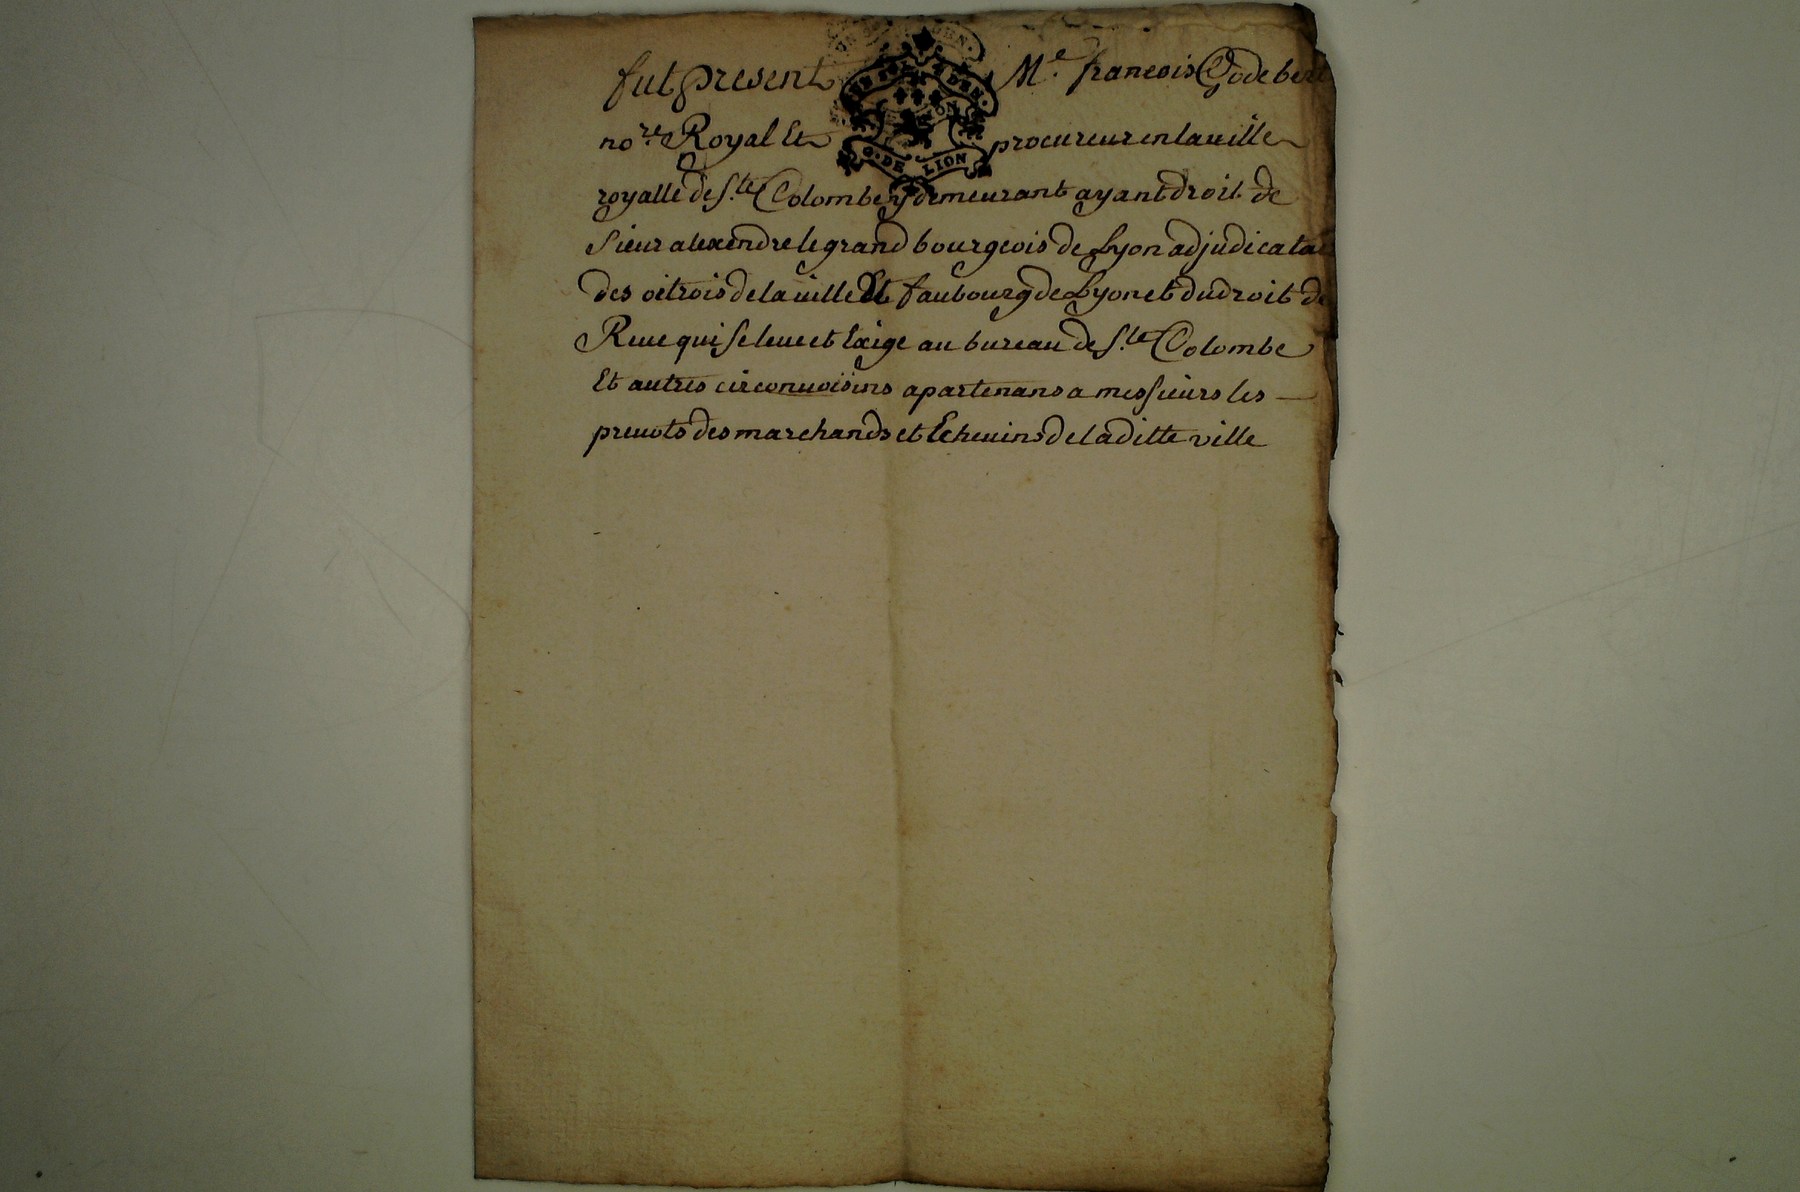 fut present Me. francois Godebert
nore. Royal Et procureur en la uille
royalle de Ste. Colombe y demeurant ayant droit de
Sieur alexendre legrand bourgeois de Lyon adjudicatai
des oitrois de la uille Et faubourg de Lyon et du droit de
Reue qui se leue et Exige au bureau de Ste. Colombe
Et autres circonuoisins apartenans a messieurs les
preuots des marchands et Echeuins de la ditte ville
G. DE LION